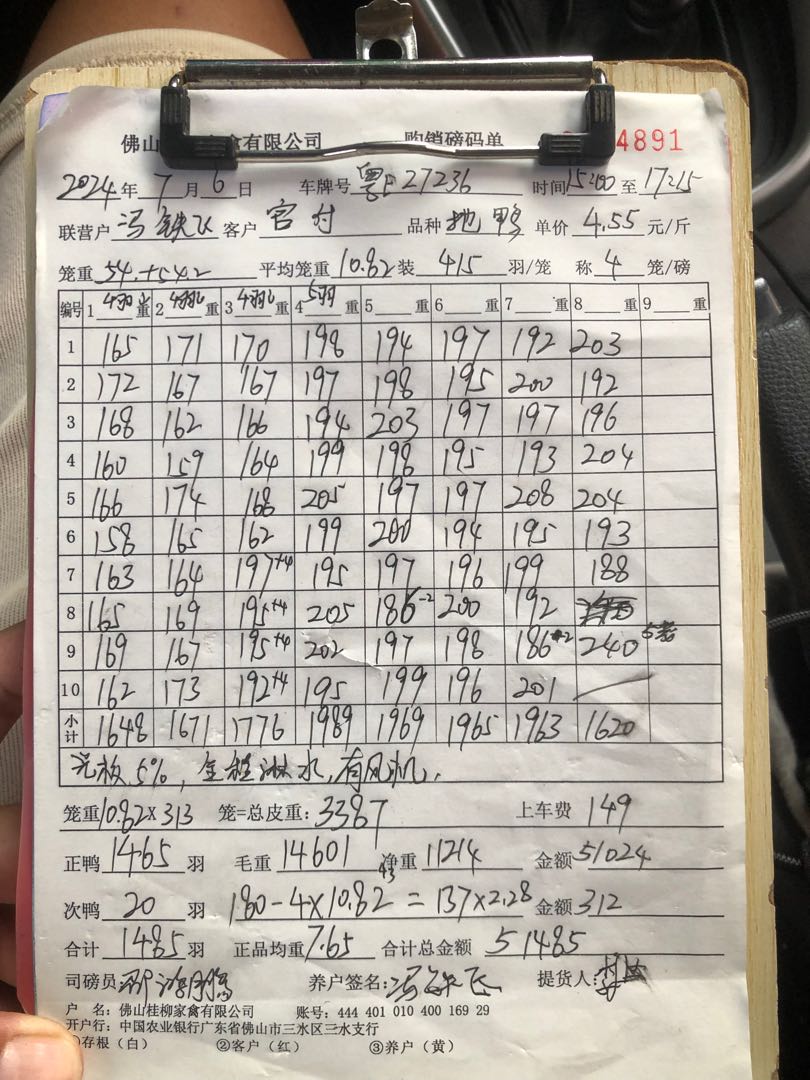 佛山 家禽有限公司 购销磅码单 4891
2024年7月6日 车牌号 粤F27236 时间15:00至17:15
联营户 冯铁飞 客户 宫付 品种 地鸭 单价 4.55 元/斤
笼重 54.+54.2 平均笼重 10.82 装 4/5 羽/笼 称 4 笼/磅
编号 1 4羽 重 2 4羽 重 3 4羽 重 4 5羽 重 5 重 6 重 7 重 8 重 9 重
1 165 171 170 198 194 197 192 203
2 172 167 167 197 198 195 200 192
3 168 162 166 194 203 197 197 196
4 160 159 164 199 198 195 193 204
5 166 174 168 205 197 197 208 204
6 158 165 162 199 200 194 195 193
7 163 164 197+4 195 197 196 199 188
8 165 169 195+4 205 186-2 200 192
9 169 167 195+4 202 197 198 186+2 240
10 162 173 192+4 195 199 196 201 —
小计 1648 1671 1776 1989 1969 1965 1963 1620
5%, 全程淋水, 有风机.
笼重10.82×313 笼=总皮重: 3387 上车费 149
正鸭 1465 羽 毛重 14601 净重 11214 金额 51024
43
次鸭 20 羽 180-4×10.82=137×2.28 金额 312
合计 1485 羽 正品均重 7.65 合计总金额 51485
司磅员 养户签名: 冯铁飞 提货人:
户 名: 佛山桂柳家禽有限公司 账号: 444 401 010 400 169 29
开户行: 中国农业银行广东省佛山市三水区三水支行
①存根(白) ②客户(红) ③养户(黄)